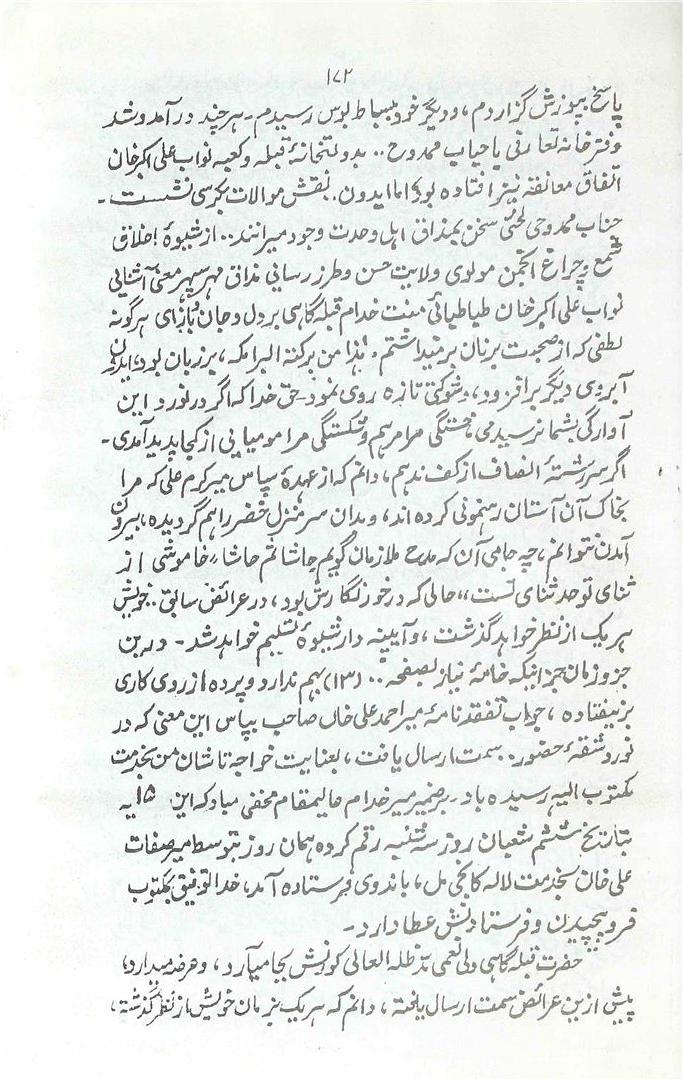 ۱۷۲
پاسخ بپوزش گزاردم، ودیگر خود ببساط بوس رسیدم۔ ہرچند درآمد وشد
وفترخانہ تعارفی باجناب ممدوح.. بدولتخانۂ قبلہ وکعبہ نواب علی اکبرخان
اتفاق معانقہ نیز افتادہ بود، اما ایدون.. نقش موالات بکرسی نشست۔
جناب ممدوحی سخن بمذاق اہل وحدت وجود میرانند.. از شیوۂ اخلاق
شمع وچراغ انجمن مولوی ولایت حسن وطرز رسائی مذاق مہر سپہر معنی آشنائی
نواب علی اکبرخان طباطبائی منت خدام قبلہ گاہی بردل وجان بازای ہرگونہ
لطفی کہ از صحبت برنان برمیداشتم، ہذا من برکتہ البرامکہ، برزبان بود، ایدون
آبروی دیگر برافزود، وشوکتی تازہ روی نمود۔ حق خدا کہ اگر در نورد این
آوارگی بشما نرسیدمی خستگی مرا مرہم وشکستگی مرا مومیائی از کجا پدید آمدی۔
اگر سررشتۂ انصاف از کف ندہم، دانم کہ از عہدۂ سپاس میر کرم علی کہ مرا
بخاک آن آستان رہنمونی کردہ اند، وبدان سرمنزل خضر راہم گردیدہ، بیرون
آمدن نتوانم، چہ جای آن کہ مدح ملازمان گویم حاشا ثم حاشا، خاموشی از
ثنای تو حد ثنای تست، حالی کہ درخور نگارش بود، در عرائض سابق.. خویش
ہر یک از نظر خواہد گذشت، وآیینہ دار شیوۂ تسلیم خواہد شد۔ درین
جزو زمان جز اینکہ خامۂ نیاز بصفحہ.. (۱۳) بہم ندارد وپردہ از روی کاری
بر نیفتادہ، جواب تفقدنامۂ میر احمد علی خاں صاحب بپاس این معنی کہ در
نورد شقۂ حضور.. سمت ارسال یافت، بعنایت خواجہ تاشان من بخدمت
مکتوب الیہ رسیدہ باد۔ برضمیر میر خدام عالیمقام مخفی مباد کہ این ۱۵ یہ
بتاریخ ششم شعبان روز سہ شنبہ رقم کردہ ہمان روز بتوسط میر صفات
علی خان بخدمت لالہ کانجی مل، باندوی فرستادہ آمد، خدا توفیق بمکتوب
فروپیچیدن وفرستادنش عطا دارد۔
حضرت قبلہ گاہی ولی النعمی مدّ ظلہ العالی کورنش بجا میآرد، وعرضہ میدارد،
پیش ازین عرائض سمت ارسال یافتہ، دانم کہ ہر یک بزمان خویش از نظر گذشتہ،